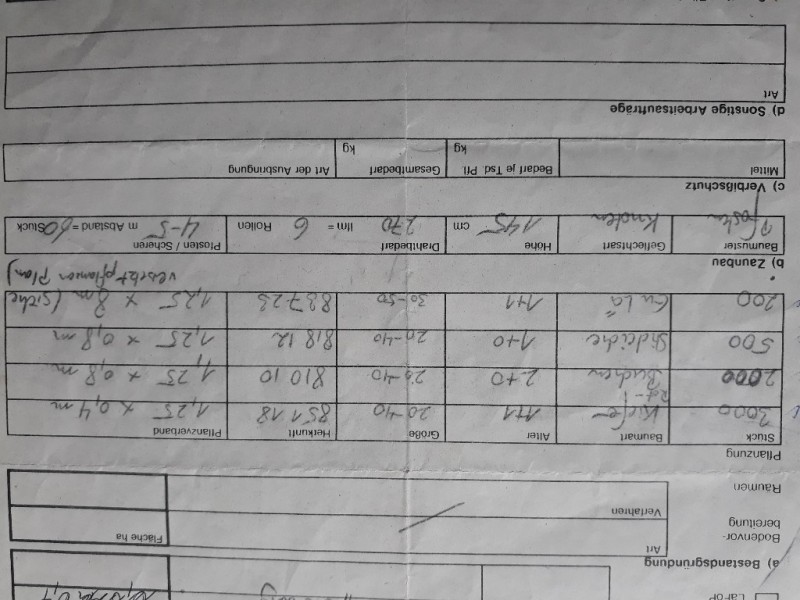 LaFoP
a) Bestandsgründung
Bodenvor-
bereitung
Art
Fläche ha
Verfahren
Räumen
Pflanzung
Stück Baumart Alter Größe Herkunft Pflanzverband
3000 Kiefer 1+1 20-40 851 18 1,25 x 0,4 m
2000 Rot-Buchen 2+0 20-40 810 10 1,25 x 0,8 m
500 Steleiche 1+0 20-40 818 12 1,25 x 0,8 m
200 Eu Lä 1+1 30-50 837 23 1,25 x 8 m (siehe
versetzt pflanzen Plan)
b) Zaunbau
Baumuster Geflechtsart Höhe Drahtbedarf Pfosten / Scheren
Pfosten Knoten 145 cm 270 lfm = 6 Rollen 4-5 m Abstand = 60 Stück
c) Verbißschutz
Mittel Bedarf je Tsd Pfl Gesamtbedarf Art der Ausbringung
kg kg
d) Sonstige Arbeitsaufträge
Art